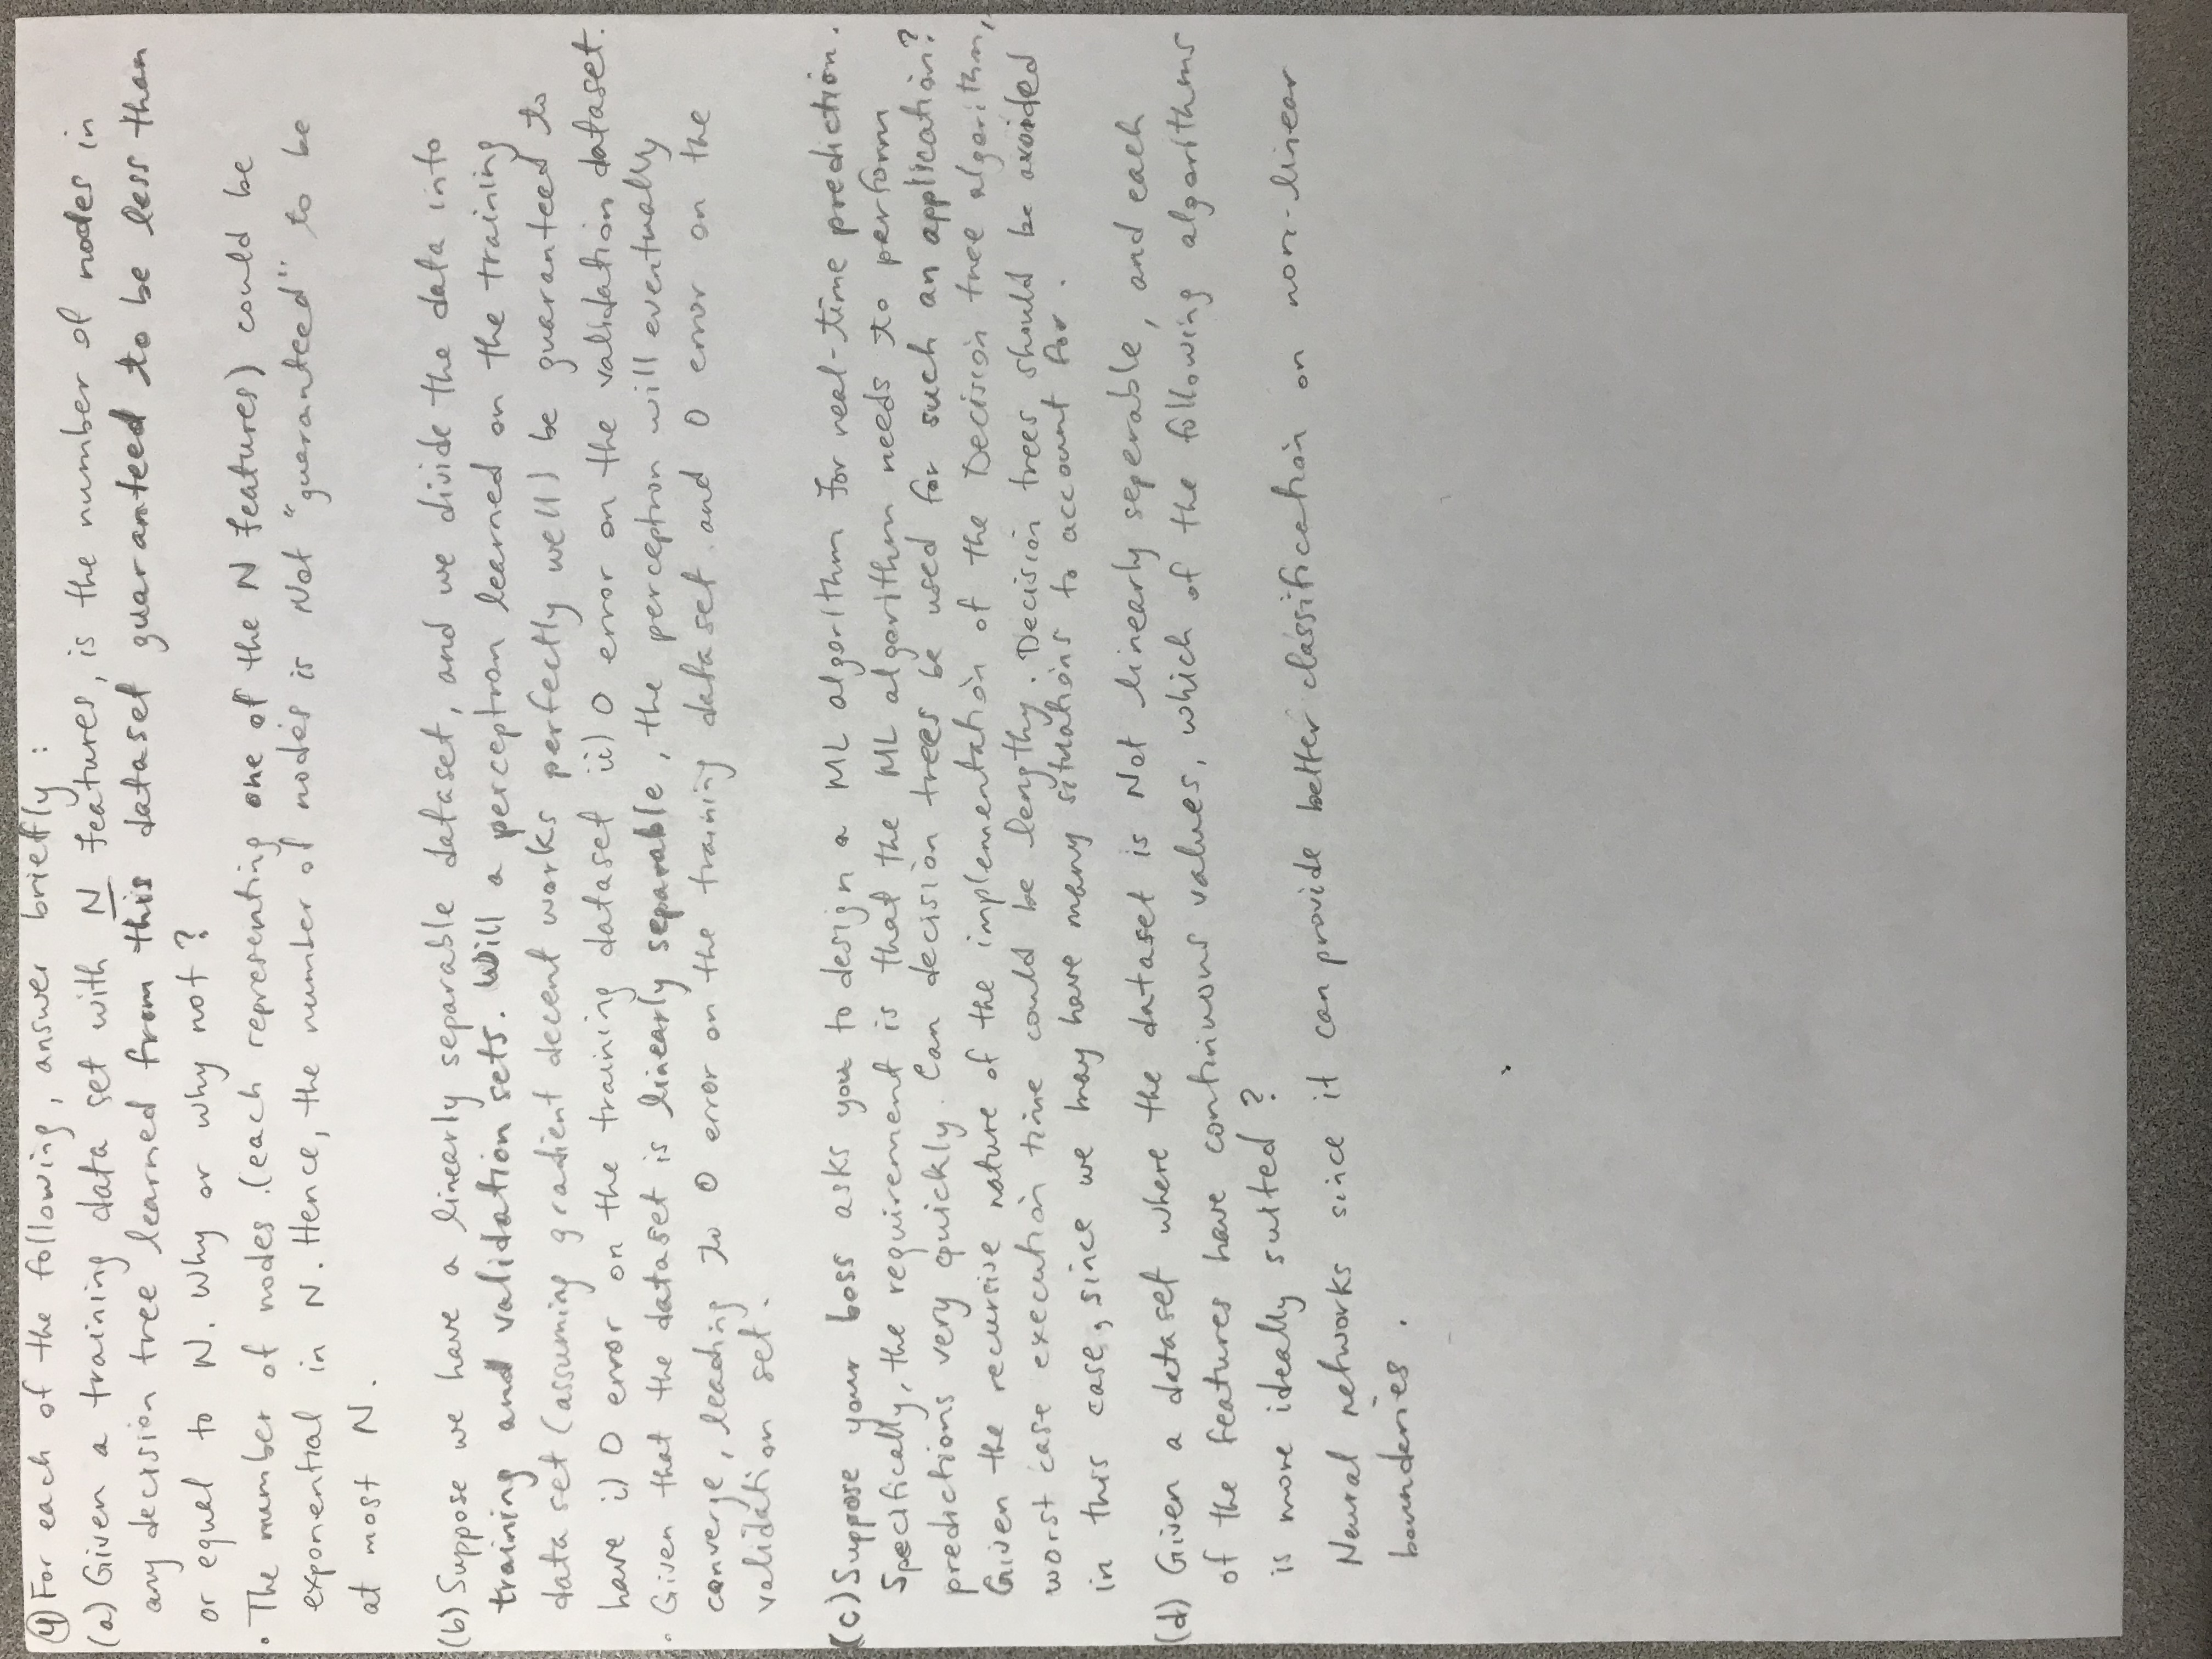 ④ For each of the following, answer briefly :
(a) Given a training data set with N features, is the number of nodes in
any decision tree learned from this dataset guaranteed to be less than
or equal to N. Why or why not ?
• The number of nodes (each representing one of the N features) could be
exponential in N. Hence, the number of nodes is Not "guaranteed" to be
at most N.
(b) Suppose we have a linearly separable dataset, and we divide the data into
training and validation sets. Will a perceptron learned on the training
data set (assuming gradient decent works perfectly well) be guaranteed to
have i) 0 error on the training dataset ii) 0 error on the validation dataset.
• Given that the dataset is linearly separable, the perceptron will eventually
converge, leading to 0 error on the training dataset and 0 error on the
validation set.
(c) Suppose your boss asks you to design a ML algorithm for real-time prediction.
Specifically, the requirement is that the ML algorithm needs to perform
predictions very quickly. Can decision trees be used for such an application?
Given the recursive nature of the implementation of the Decision tree algorithm,
worst case execution time could be lengthy. Decision trees should be avoided
in this case, since we may have many situations to account for.
(d) Given a dataset where the dataset is Not linearly seperable, and each
of the features have continuous values, which of the following algorithms
is more ideally suited ?
Neural networks since it can provide better classification on non-linear
bounderies.